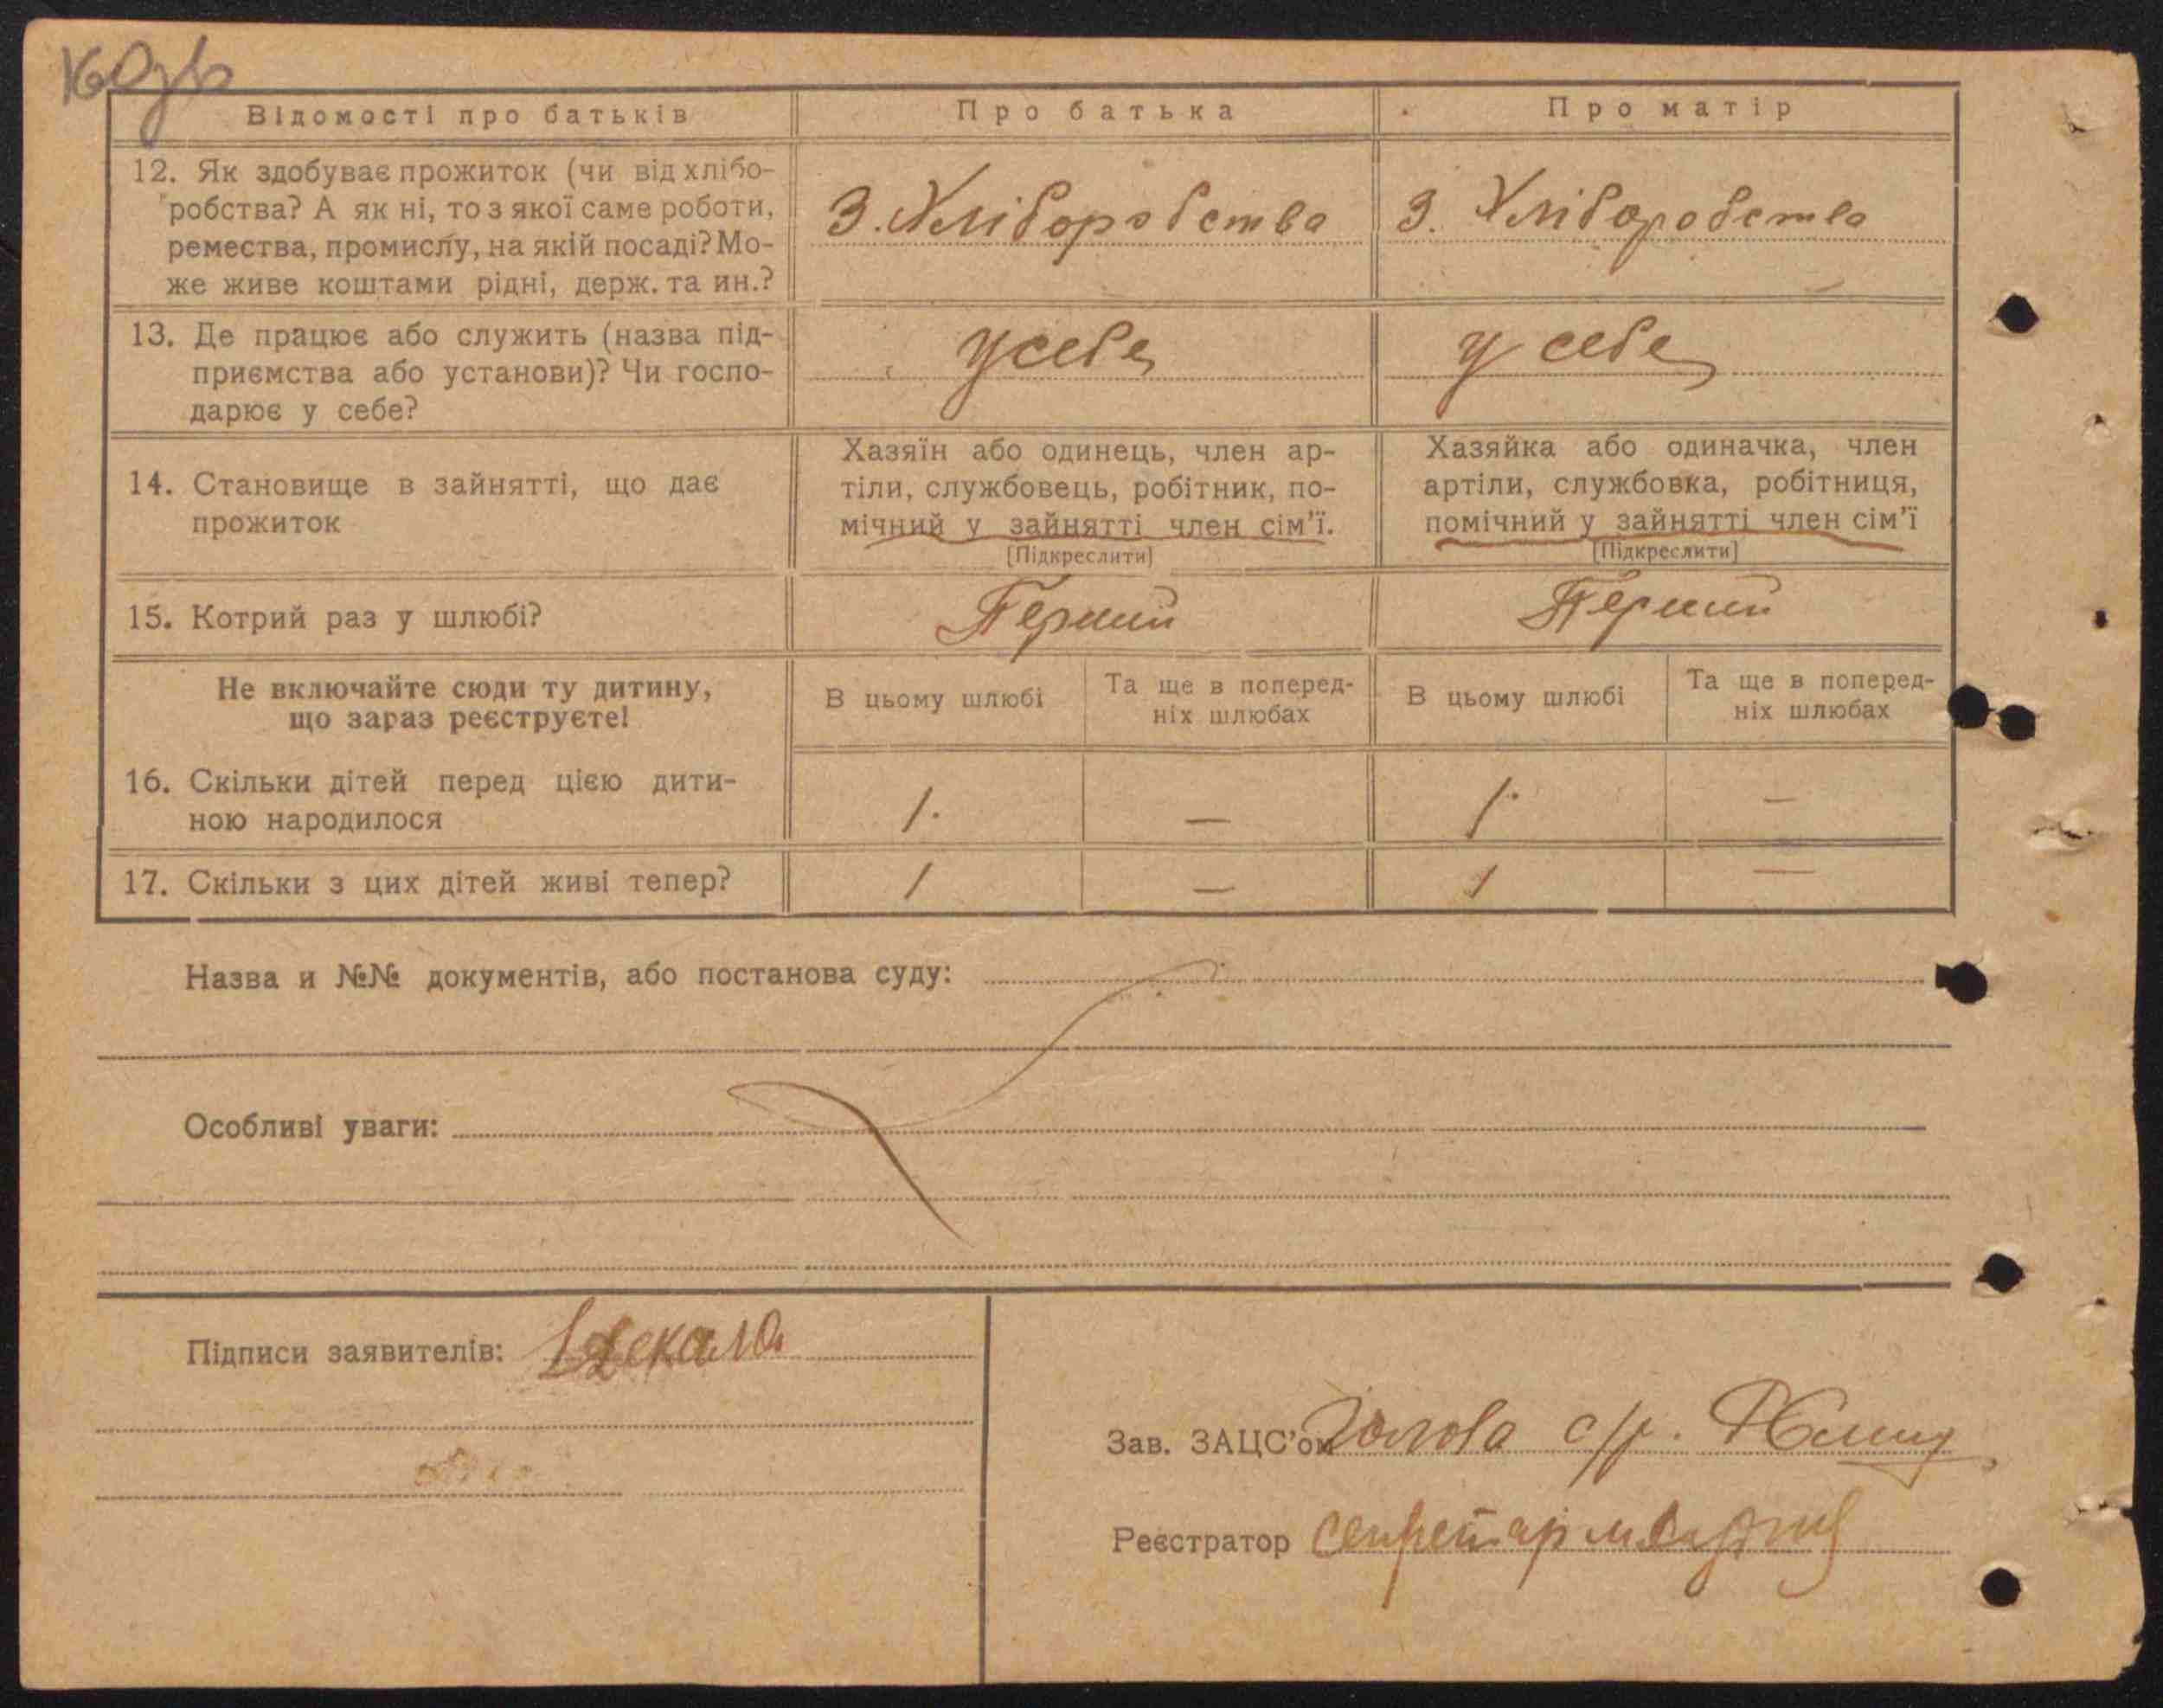 160зв
Відомості про батьків
Про батька
Про матір
12. Як здобуває прожиток (чи від хлібо-
робства? А як ні, то з якої саме роботи,
ремества, промислу, на якій посаді? Мо-
же живе коштами рідні, держ. та ин.?
З. Хліборобства
З. Хліборобства
13. Де працює або служить (назва під-
приємства або установи)? Чи госпо-
дарює у себе?
у себе
у себе
14. Становище в зайнятті, що дає
прожиток
Хазяїн або одинець, член ар-
тіли, службовець, робітник, по-
мічний у зайнятті член сім'ї.
[Підкреслити]
Хазяйка або одиначка, член
артіли, службовка, робітниця,
помічний у зайнятті член сім'ї
[Підкреслити]
15. Котрий раз у шлюбі?
Перший
Перший
Не включайте сюди ту дитину,
що зараз реєструєте!
В цьому шлюбі
Та ще в поперед-
ніх шлюбах
В цьому шлюбі
Та ще в поперед-
ніх шлюбах
16. Скільки дітей перед цією дити-
ною народилося
1. — 1. —
17. Скільки з цих дітей живі тепер?
1 — 1 —
Назва и №№ документів, або постанова суду:
Особливі уваги:
Підписи заявителів:
Зав. ЗАЦС'ом Голова с/р.
Реєстратор секретар